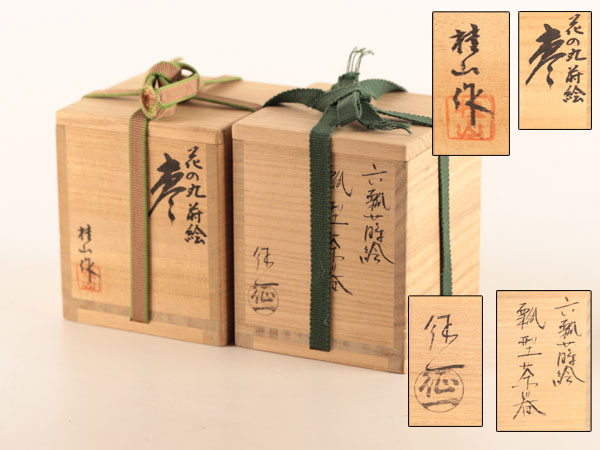 花の丸蒔絵
棗
桂山作
六瓢蒔絵
瓢型茶器
征一
桂山作
花の丸蒔絵
棗
征一
六瓢蒔絵
瓢型茶器